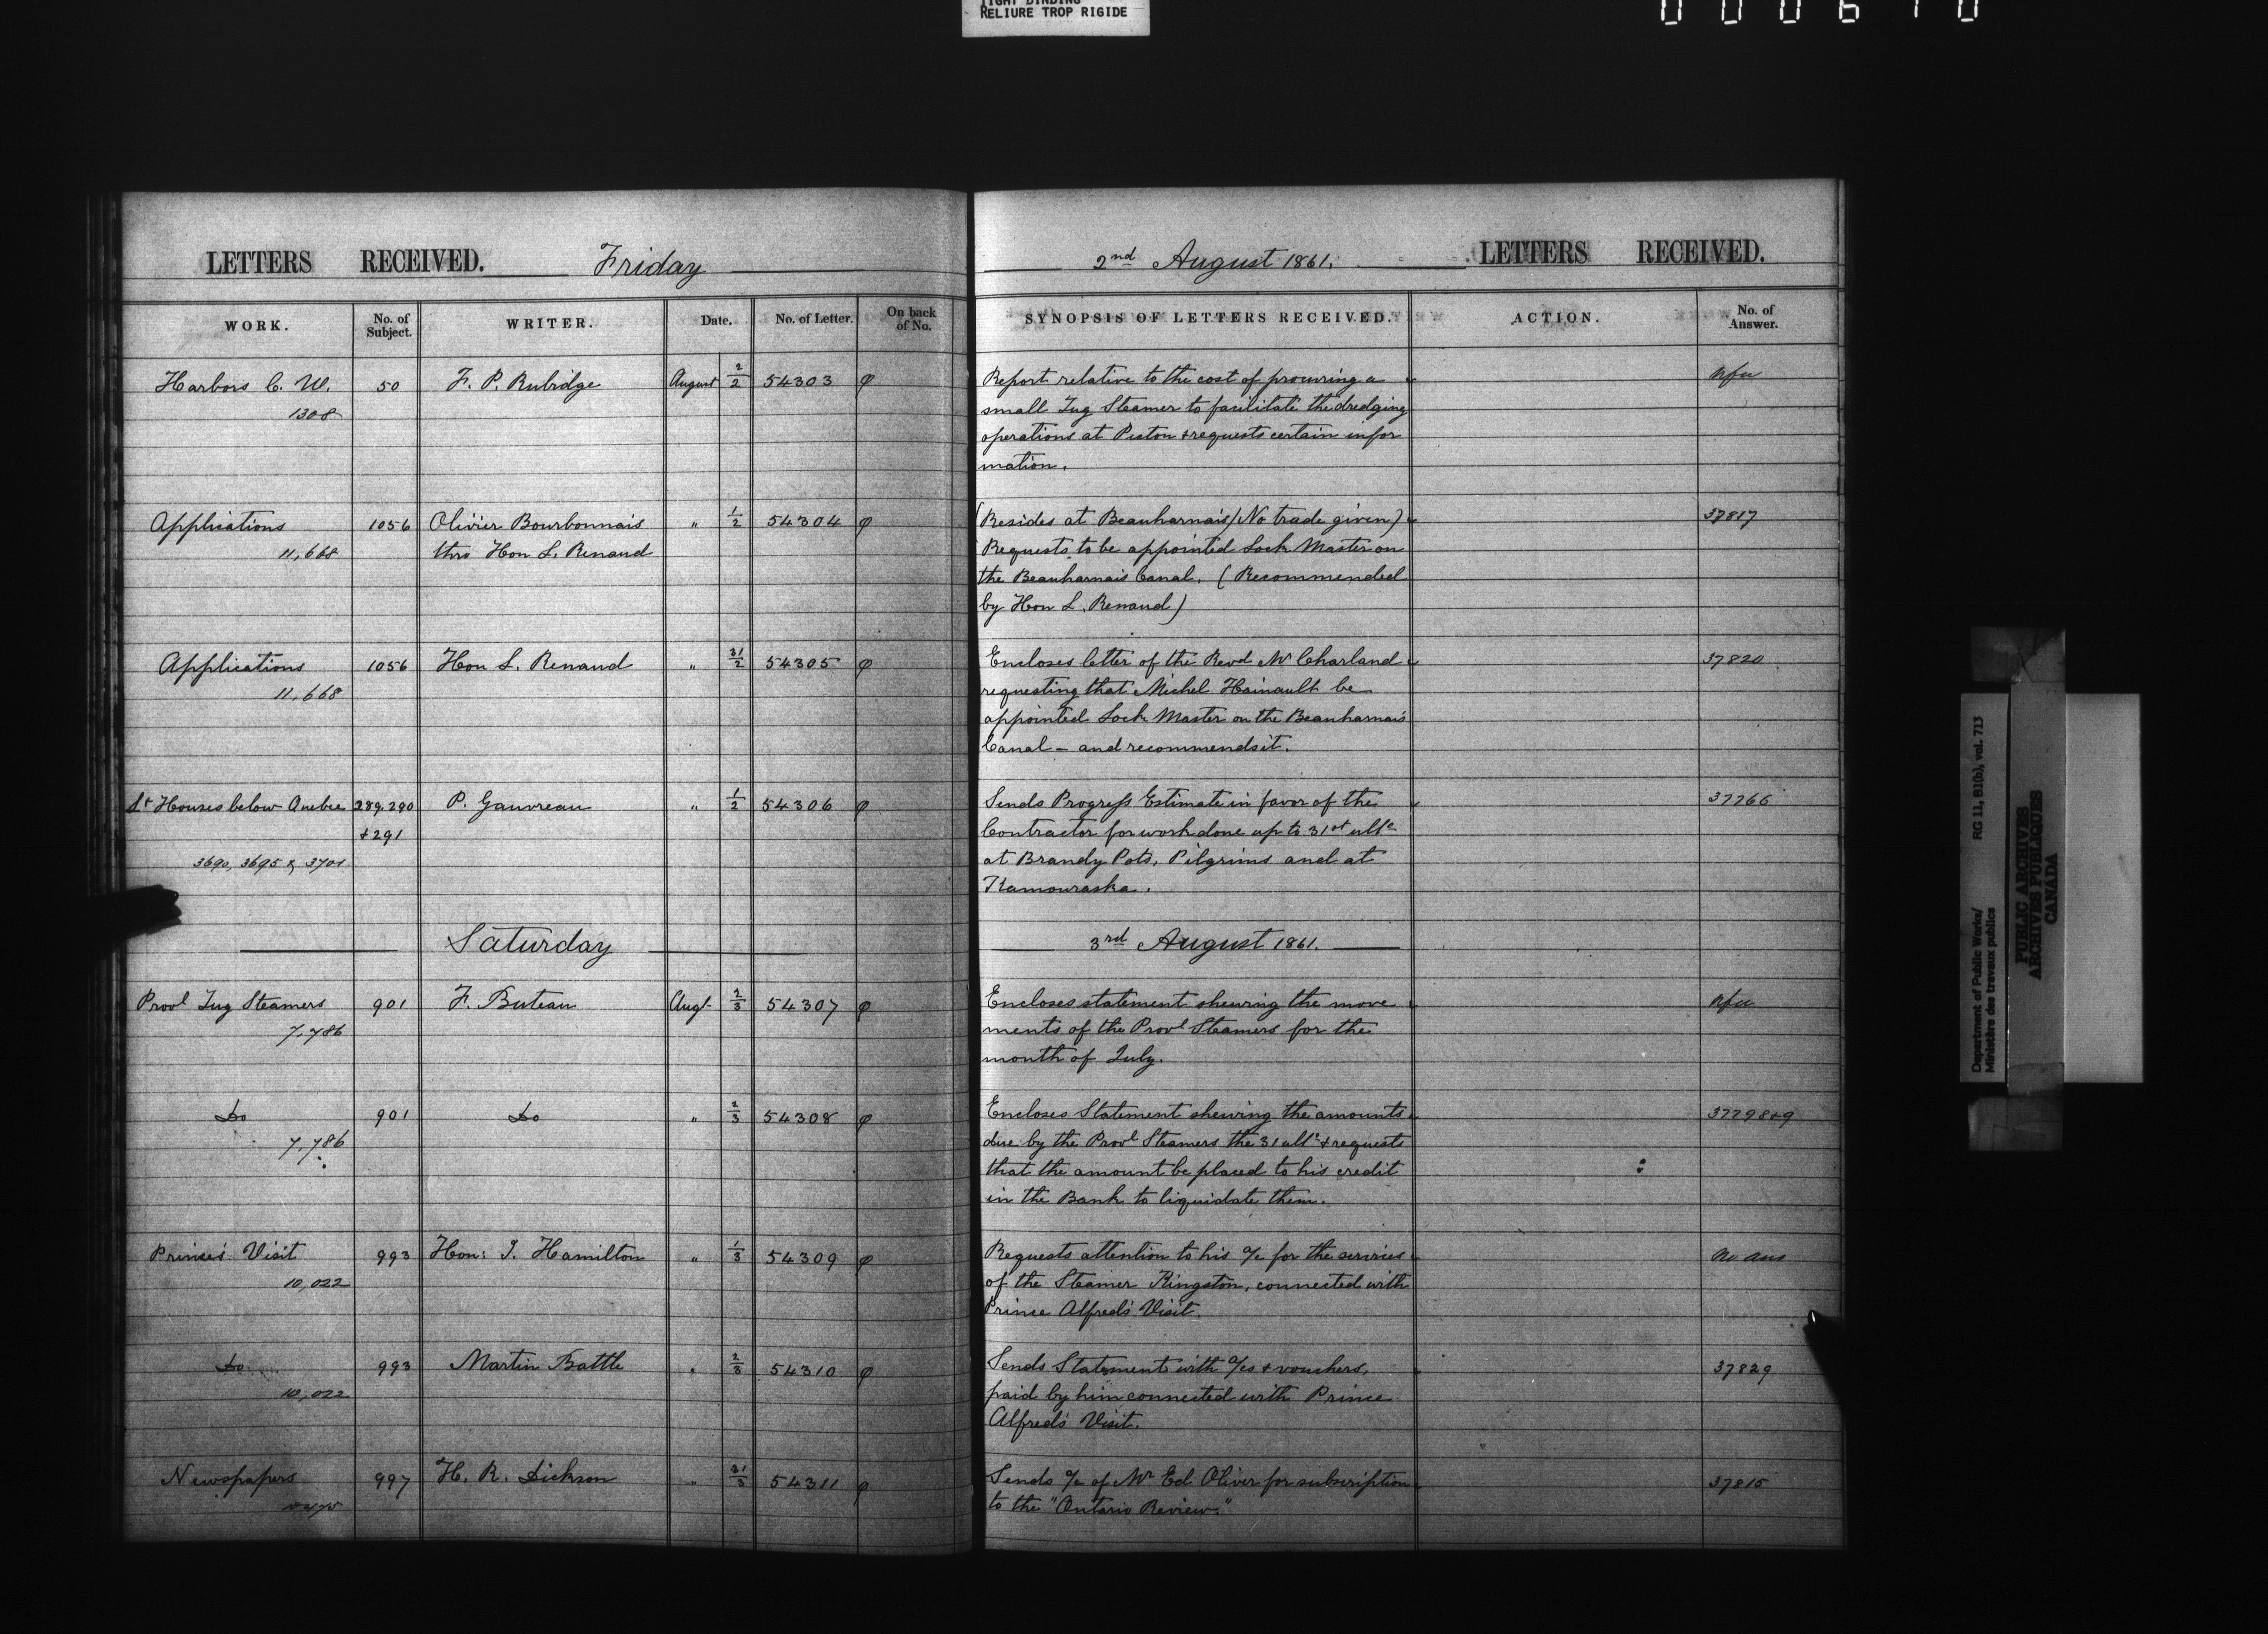 TIGHT BINDING
RELIURE TROP RIGIDE
LETTERS RECEIVED. Friday
2nd August 1861. LETTERS RECEIVED.
WORK. No. of Subject. WRITER. Date. No. of Letter. On back of No. SYNOPSIS OF LETTERS RECEIVED. ACTION. No. of Answer.
Harbors C. W. 50 F. P. Rubidge August 2/2 54303 φ Report relative to the cost of procuring a Nfu
1308 small Tug Steamer to facilitate the dredging
operations at Picton & requests certain infor
mation.
Applications 1056 Olivier Bourbonnais " 1/2 54304 φ (Resides at Beauharnais/No trade given) 37817
11,668 thro Hon L. Renaud Requests to be appointed Lock Master on
the Beauharnais Canal. (Recommended
by Hon L. Renaud)
Applications 1056 Hon L. Renaud " 31/2 54305 φ Encloses letter of the Revd Mr Charland 37820
11,668 requesting that Michel Hainault be
appointed Lock Master on the Beauharnais
Canal – and recommends it.
Lt Houses below Quebec 289.290 P. Gauvreau " 1/2 54306 φ Sends Progress Estimate in favor of the 37766
& 291 Contractor for work done up to 31st ulto
3690, 3695 & 3701 at Brandy Pots, Pilgrims and at
Kamouraska.
Saturday 3rd August 1861.
Provl Tug Steamers 901 F. Buteau Augt 2/3 54307 φ Encloses statement shewing the move Nfu
7,786 ments of the Provl Steamers for the
month of July.
Do 901 Do " 2/3 54308 φ Encloses Statement shewing the amounts 37798&9
7,786 due by the Provl Steamers the 31 ulto & requests
that the amount be placed to his credit
in the Bank to liquidate them.
Prince's Visit 993 Hon: J. Hamilton " 1/3 54309 φ Requests attention to his a/c for the services No ans
10,022 of the Steamer Kingston, connected with
Prince Alfred's Visit
Do 993 Martin Battle " 2/3 54310 φ Sends Statement with a/cs & vouchers, 37829
10,022 paid by him connected with Prince
Alfred's Visit.
Newspapers 997 H. R. Dickson " 31/3 54311 φ Sends a/c of Mr Ed Oliver for subscription 37815
to the "Ontario Review."
Department of Public Works/ RG 11, B1(b), vol. 713
Ministère des travaux publics
PUBLIC ARCHIVES
ARCHIVES PUBLIQUES
CANADA